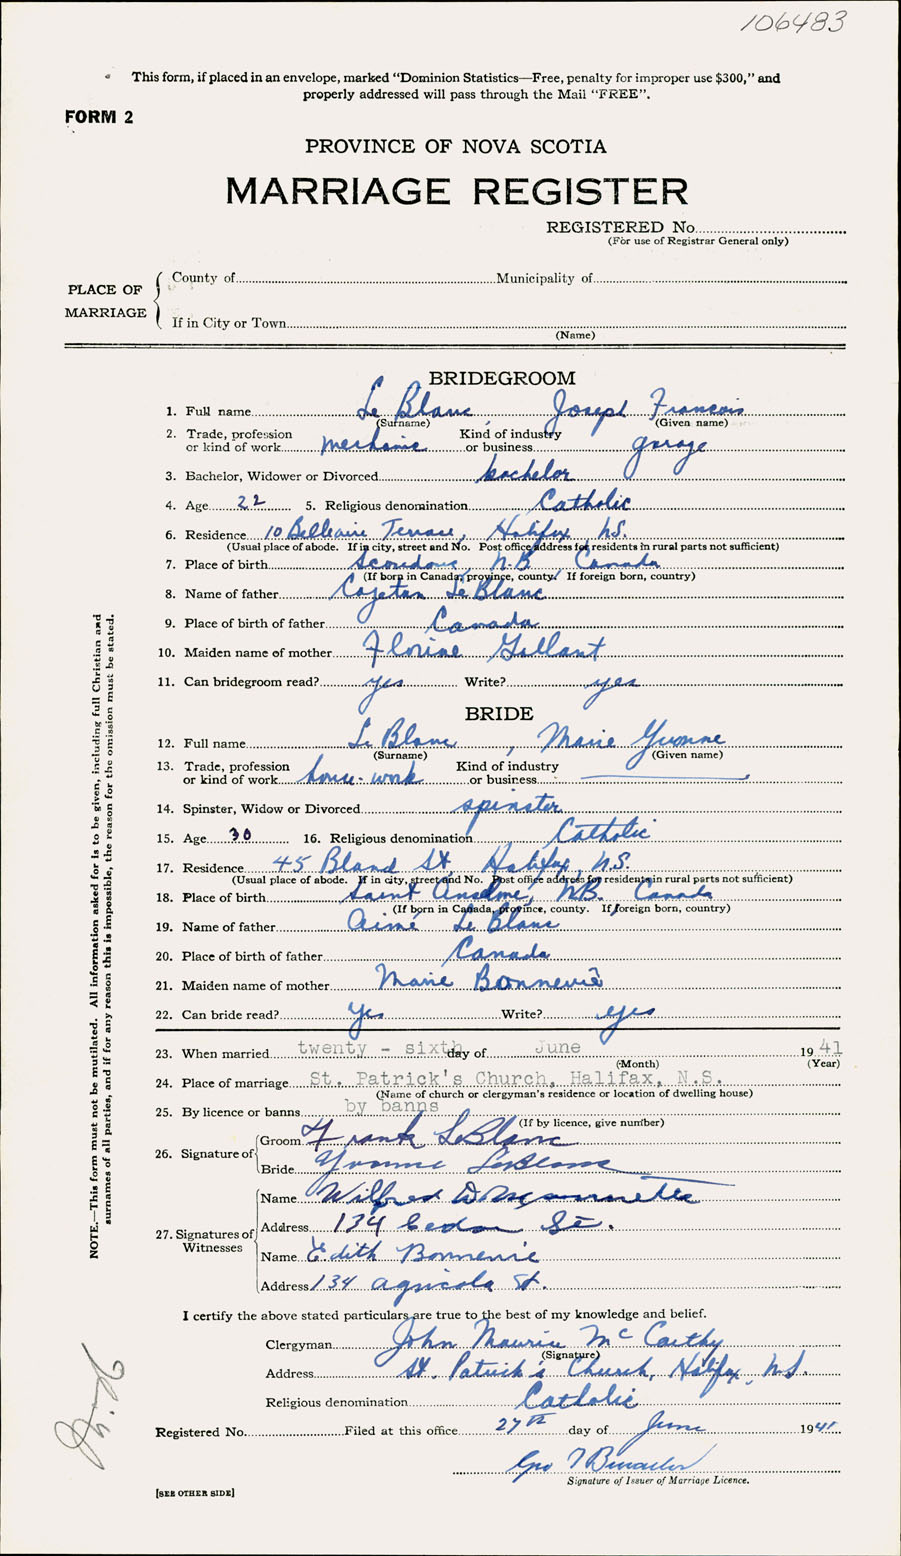 106483
This form, if placed in an envelope, marked "Dominion Statistics—Free, penalty for improper use $300," and
properly addressed will pass through the Mail "FREE".
FORM 2
PROVINCE OF NOVA SCOTIA
MARRIAGE REGISTER
REGISTERED No.
(For use of Registrar General only)
PLACE OF MARRIAGE
County of Municipality of
If in City or Town
(Name)
BRIDEGROOM
1. Full name Le Blanc, Joseph Francois
(Surname) (Given name)
2. Trade, profession or kind of work mechanic Kind of industry or business garage
3. Bachelor, Widower or Divorced bachelor
4. Age 22 5. Religious denomination Catholic
6. Residence 10 Belleaire Terrace, Halifax N.S.
(Usual place of abode. If in city, street and No. Post office address for residents in rural parts not sufficient)
7. Place of birth Scoudouc, N.B. Canada
(If born in Canada, province, county. If foreign born, country)
8. Name of father Cajetan Le Blanc
9. Place of birth of father Canada
10. Maiden name of mother Florine Gallant
11. Can bridegroom read? yes Write? yes
BRIDE
12. Full name Le Blanc, Marie Yvonne
(Surname) (Given name)
13. Trade, profession or kind of work house-work Kind of industry or business
14. Spinster, Widow or Divorced spinster
15. Age 30 16. Religious denomination Catholic
17. Residence 45 Bland St Halifax, N.S.
(Usual place of abode. If in city, street and No. Post office address for residents in rural parts not sufficient)
18. Place of birth Saint Anselme, NB. Canada
(If born in Canada, province, county. If foreign born, country)
19. Name of father Aimé Le Blanc
20. Place of birth of father Canada
21. Maiden name of mother Marie Bonnevie
22. Can bride read? Yes Write? yes
23. When married twenty - sixth day of June 1941
(Month) (Year)
24. Place of marriage St. Patrick's Church, Halifax, N.S.
(Name of church or clergyman's residence or location of dwelling house)
25. By licence or banns by banns
(If by licence, give number)
26. Signature of
Groom Frank LeBlanc
Bride Yvonne LeBlanc
27. Signatures of Witnesses
Name Wilfred
Address 134 St.
Name Edith Bonnevie
Address 134 Agricola St.
I certify the above stated particulars are true to the best of my knowledge and belief.
Clergyman John Maurice McCarthy
(Signature)
Address St. Patrick's Church, Halifax, N.S.
Religious denomination Catholic
Registered No. Filed at this office 27th day of June 1941
Geo
Signature of Issuer of Marriage Licence.
[SEE OTHER SIDE]
NOTE.—This form must not be mutilated. All information asked for is to be given, including full Christian and
surnames of all parties, and if for any reason this is impossible, the reason for the omission must be stated.